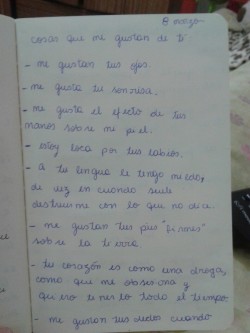 8 marzo
cosas que me gustan de ti.
- me gustan tus ojos.
- me gusta tu sonrisa.
- me gusta el efecto de tus
manos sobre mi piel.
- estoy loca por tus labios.
- a tu lengua le tengo miedo,
de vez en cuando suele
destruirme con lo que no dice.
- me gustan tus pies "firmes"
sobre la tierra
- tu corazón es como una droga,
como que me obsesiona y
quiero tenerlo todo el tiempo
- me gustan tus cuando